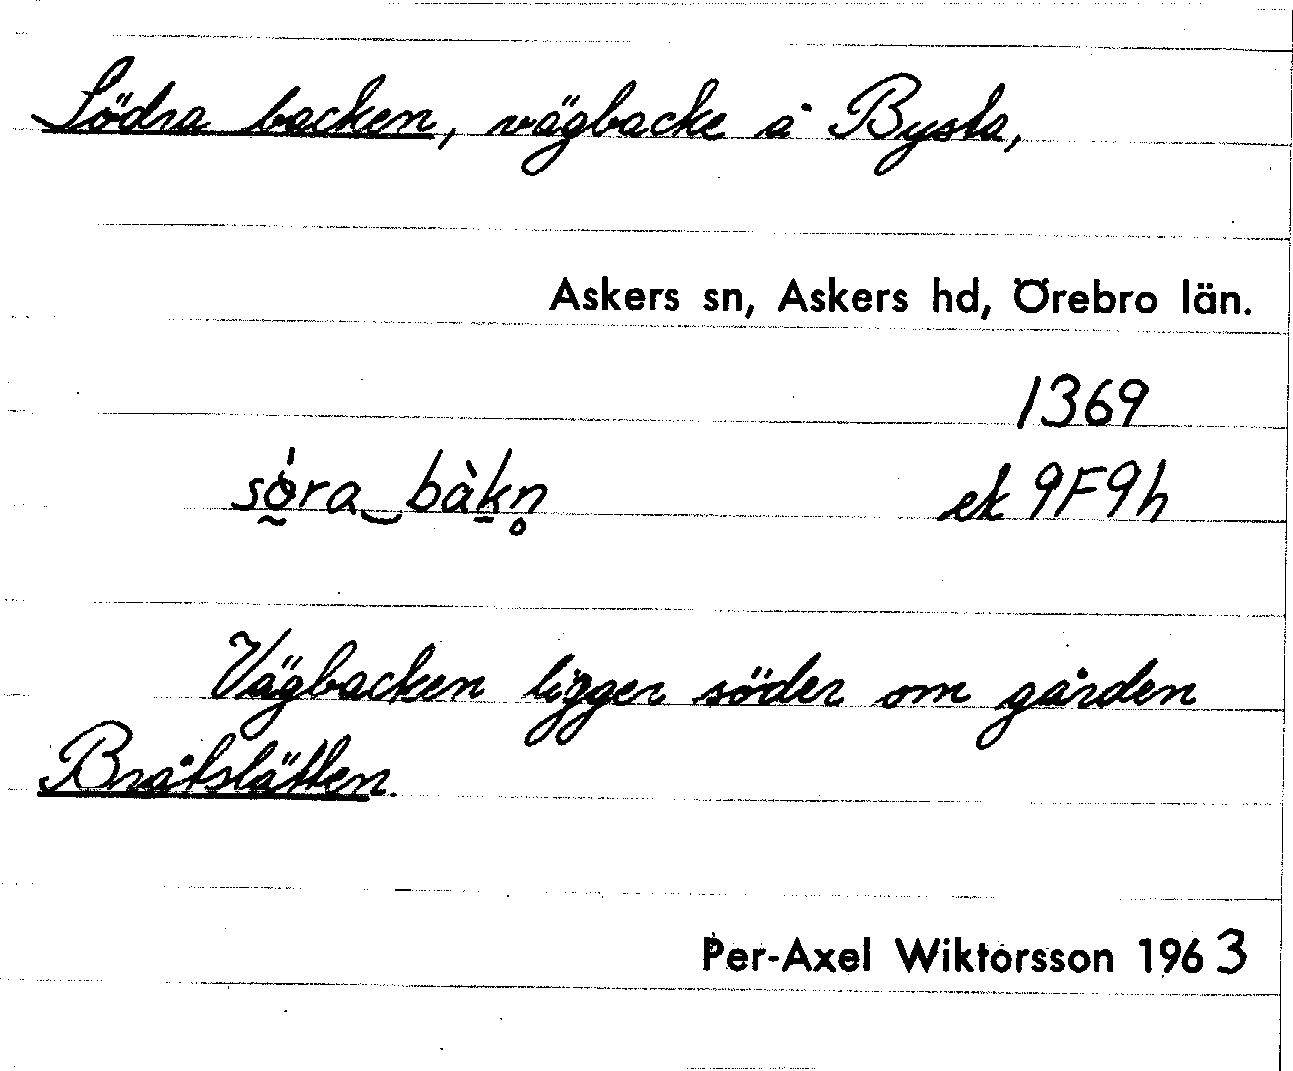 Södra backen, vägbacke å Bysta,
Askers sn, Askers hd, Örebro län.
1369
sǿ̰ra‿bàk̠n̥ ek 9F9h
Vägbacken ligger söder om gården
Bråtslätten.
Per-Axel Wiktorsson 1963